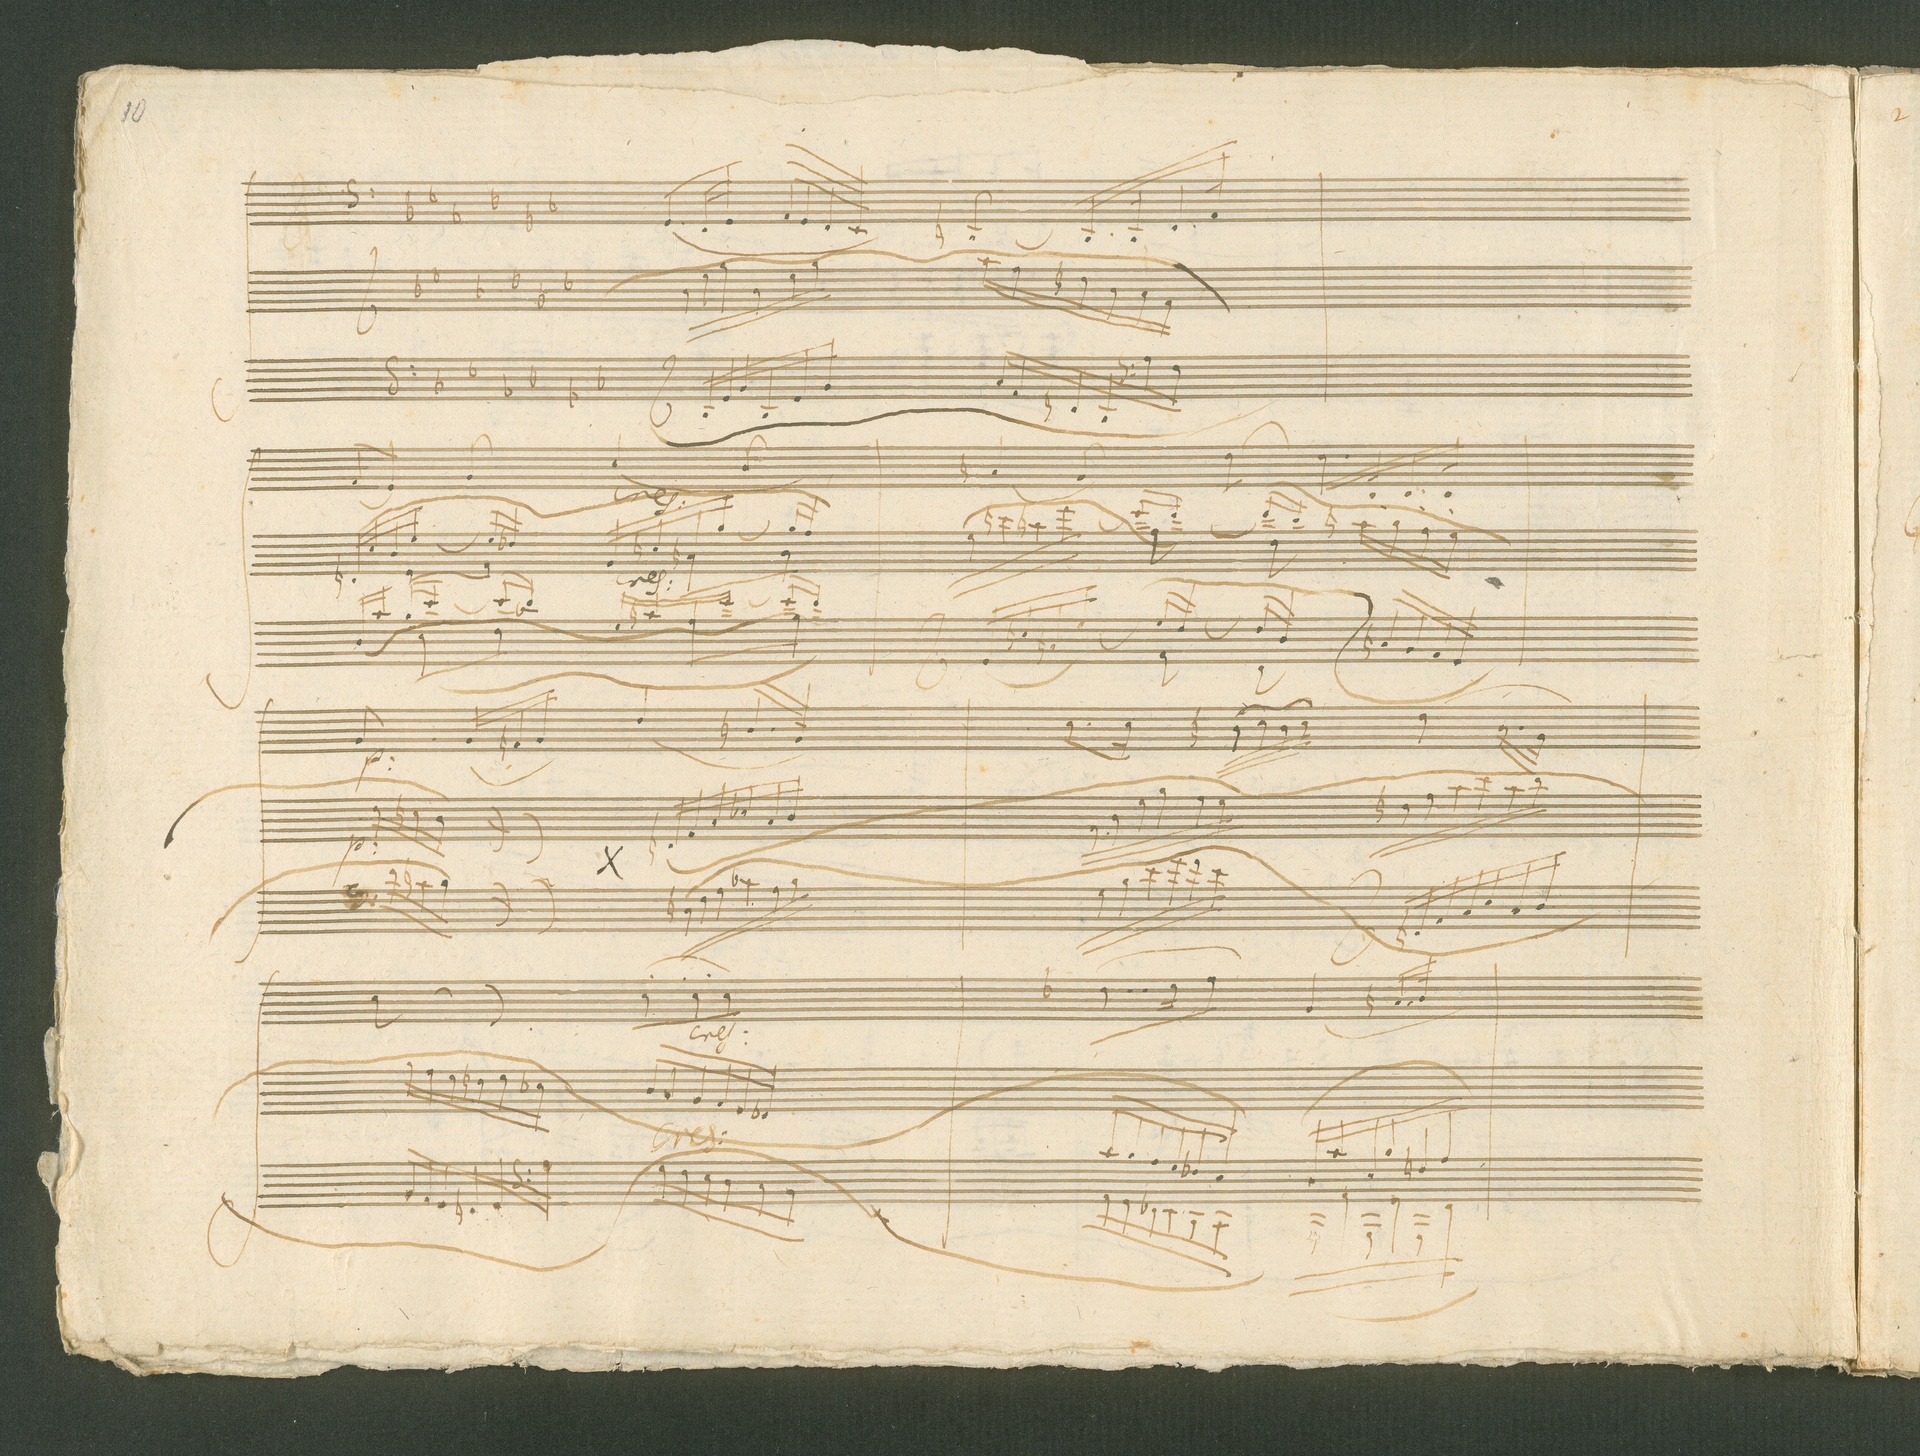 10
2
cres:
cres:
p:
p:
X
cres:
cres: